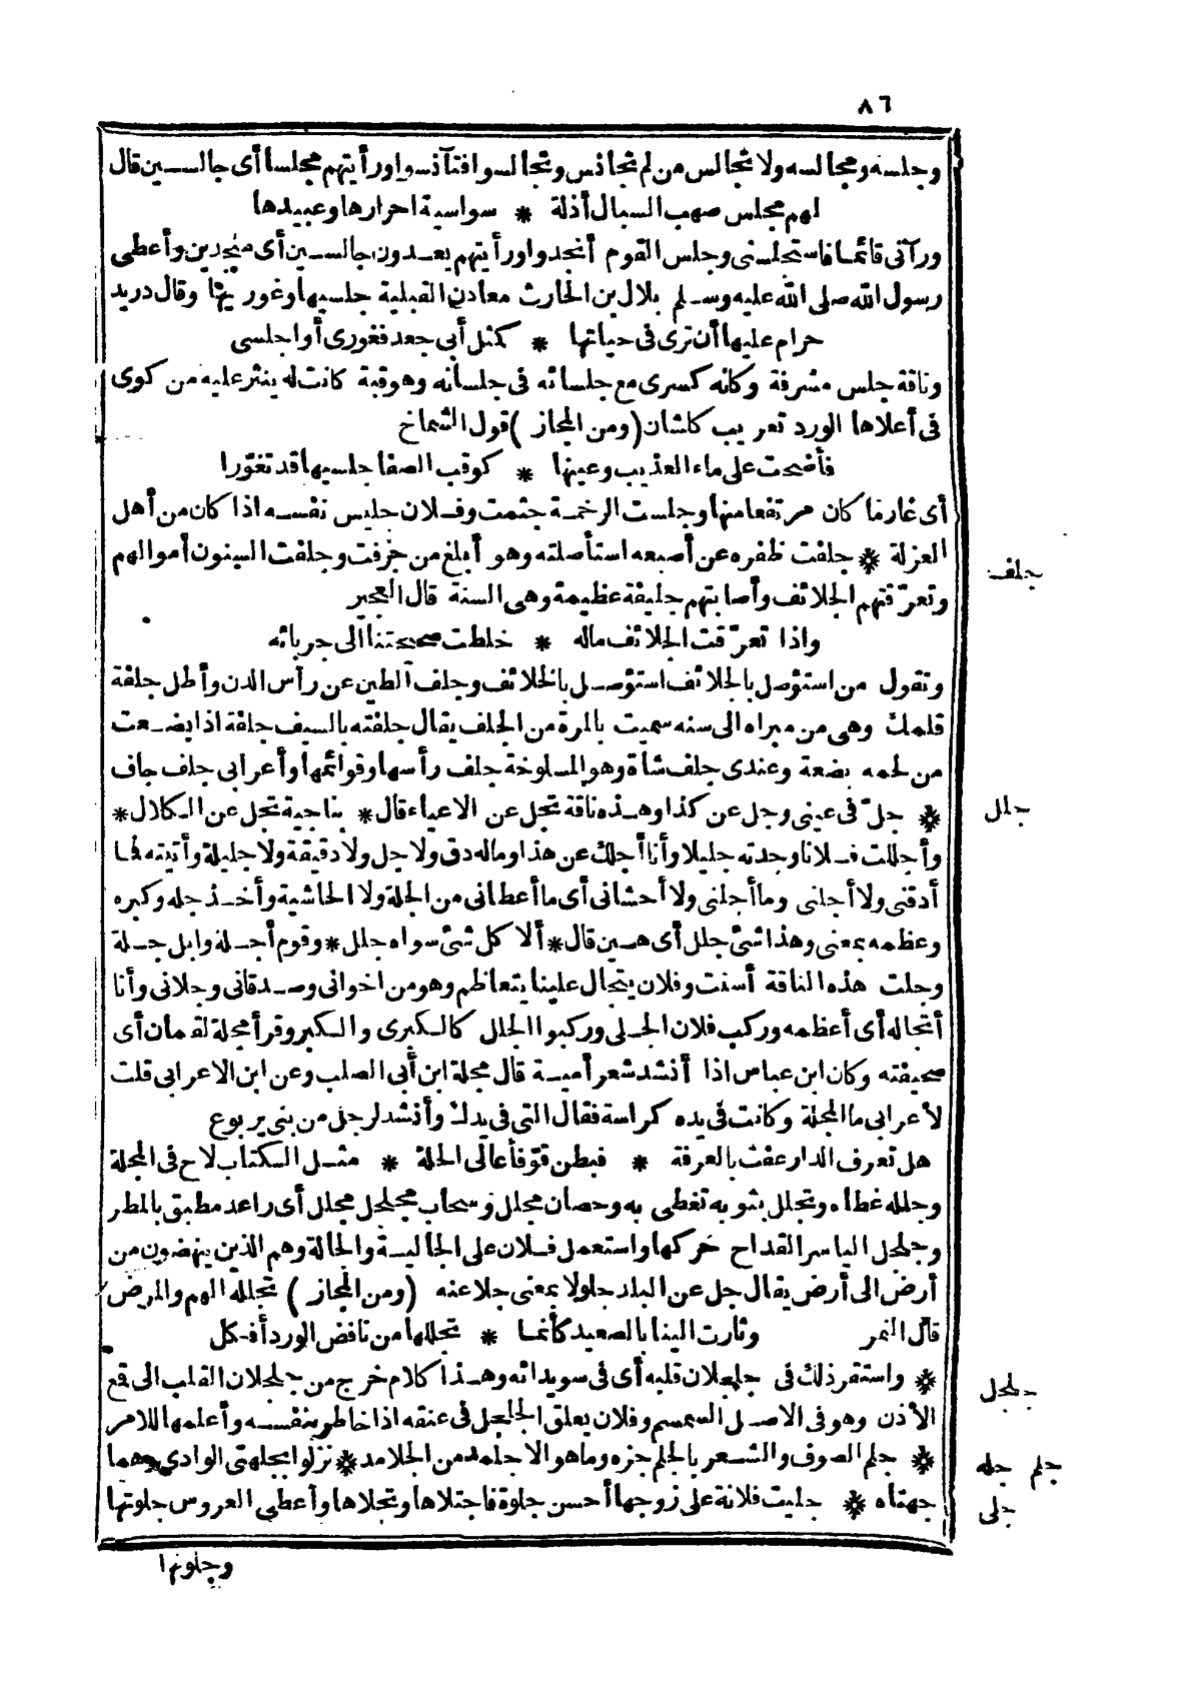 ٨٦
وجلسه ومجالسه ولا تجالس من لم تجاذس وتجالسوا فتآذسوا ورأيتهم مجلسا أى جالسين قال
لهم مجلس صهب السبال أذلة * سواسية احرارها وعبيدها
ورآنى قائما فاستجلسنى وجلس القوم أنجدوا ورأيتهم يعدون جالسين أى منجدين وأعطى
رسول الله صلى الله عليه وسلم بلال بن الحارث معادن القبلية جلسيها وغوريها وقال دريد
حرام عليها أن ترى فى حياتها * كمثل أبى جعد فغورى أو اجلسى
وناقة جلس مشرفة وكأنه كسرى مع جلسائه فى جلسانه وهو قبة كانت له ينثر عليه من كوى
فى أعلاها الورد تعريب كلشان (ومن المجاز) قول الشماخ
فأضحت على ماء العذيب وعينها * كوقب الصفا جلسيها قد تغورا
أى غار ما كان مرتفعا منها وجلست الرخمة جثمت وفلان جليس نفسه اذا كان من أهل
العزلة * جلفت ظفره عن أصبعه استأصلته وهو أبلغ من جرفت وجلفت السنون أموالهم
جلف
وتعرّقتهم الجلائف وأصابتهم جليفة عظيمة وهى السنة قال العجير
واذا تعرّقت الجلائف ماله * خلطت صحيحتنا الى جربائه
وتقول من استؤصل بالجلائف استؤصل بالخلائف وجلف الطين عن رأس الدن وأطل جلفة
قلمك وهى من مبراه الى سنه سميت بالمرة من الجلف يقال جلفته بالسيف جلفة اذا بضعت
من لحمه بضعة وعندى جلف شاة وهو المسلوخة جلف رأسها وقوائمها وأعرابى جلف جاف
* جلّ فى عينى وجل عن كذا وهذه ناقة تجل عن الاعياء قال * بناجية تجل عن الكلال *
جلل
وأجللت فلانا وجدته جليلا وأنا أجلك عن هذا وماله دق ولا جل ولا دقيقة ولا جليلة وأتيته فما
أدقنى ولا أجلنى وما أجلنى ولا أحشانى أى ما أعطانى من الجلة ولا الحاشية وأخذ جله وكبره
وعظمه بمعنى وهذا شئ جلل أى هين قال * ألا كل شئ سواه جلل * وقوم أجلة وابل جلة
وجلت هذه الناقة أسنت وفلان يتجال علينا يتعاظم وهو من اخوانى وصدقانى وجلانى وأنا
أتجاله أى أعظمه وركب فلان الجلى وركبوا الجلل كالكبرى والكبر وقرأ مجلة لقمان أى
صحيفته وكان ابن عباس اذا أنشد شعر أمية قال مجلة ابن أبى الصلت وعن ابن الاعرابى قلت
لأعرابى ما المجلة وكانت فى يده كراسة فقال التى فى يدك وأنشد لرجل من بنى يربوع
هل تعرف الدار عفت بالعرفة * فبطن قوّ فأعالى الحلة * مثل الكتاب لاح فى المجلة
وجلله غطاه وتجلل بثوبه تغطى به وحصان مجلل وسحاب مجلجل مجلل أى راعد مطبق بالمطر
وجلجل الياسر القداح حركها واستعمل فلان على الجالية والجالة وهم الذين ينهضون من
أرض الى أرض يقال جل عن البلد جلولا بمعنى جلا عنه (ومن المجاز) تجلله الهم والمرض
قال النمر وثارت الينا بالصعيد كأنما * تجللها من نافض الورد أفكل
* واستقر ذلك فى جلجلان قلبه أى فى سويدائه وهذا كلام خرج من جلجلان القلب الى قمع
جلجل
الأذن وهو فى الاصل السمسم وفلان يعلق الجلجل فى عنقه اذا خاطر بنفسه وأعلمها للامر
* جلم الصوف والشعر بالجلم جزه وما هو الا جلمد من الجلامد * نزلوا بجلهتى الوادى وهما
جلم جله
جهتاه * جليت فلانة على زوجها أحسن جلوة فاجتلاها وتجلاها وأعطى العروس جلوتها
جلى
وجلوتها